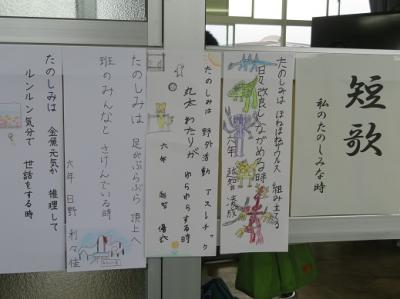 短歌
私のたのしみな時
たのしみは
組み立てる
改良しながめる時
六年
たのしみは 野外活動 アスレチック
丸太わたりが ゆらゆらする時
六年
たのしみは 足がぶらぶら 頂上へ
班のみんなと さけんでいる時
六年 日野
たのしみは 金魚元気か 推理して
ルンルン気分で 世話をする時